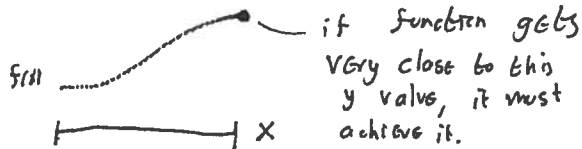 if function gets
very close to this
y value, it must
achieve it.
f(x)
X